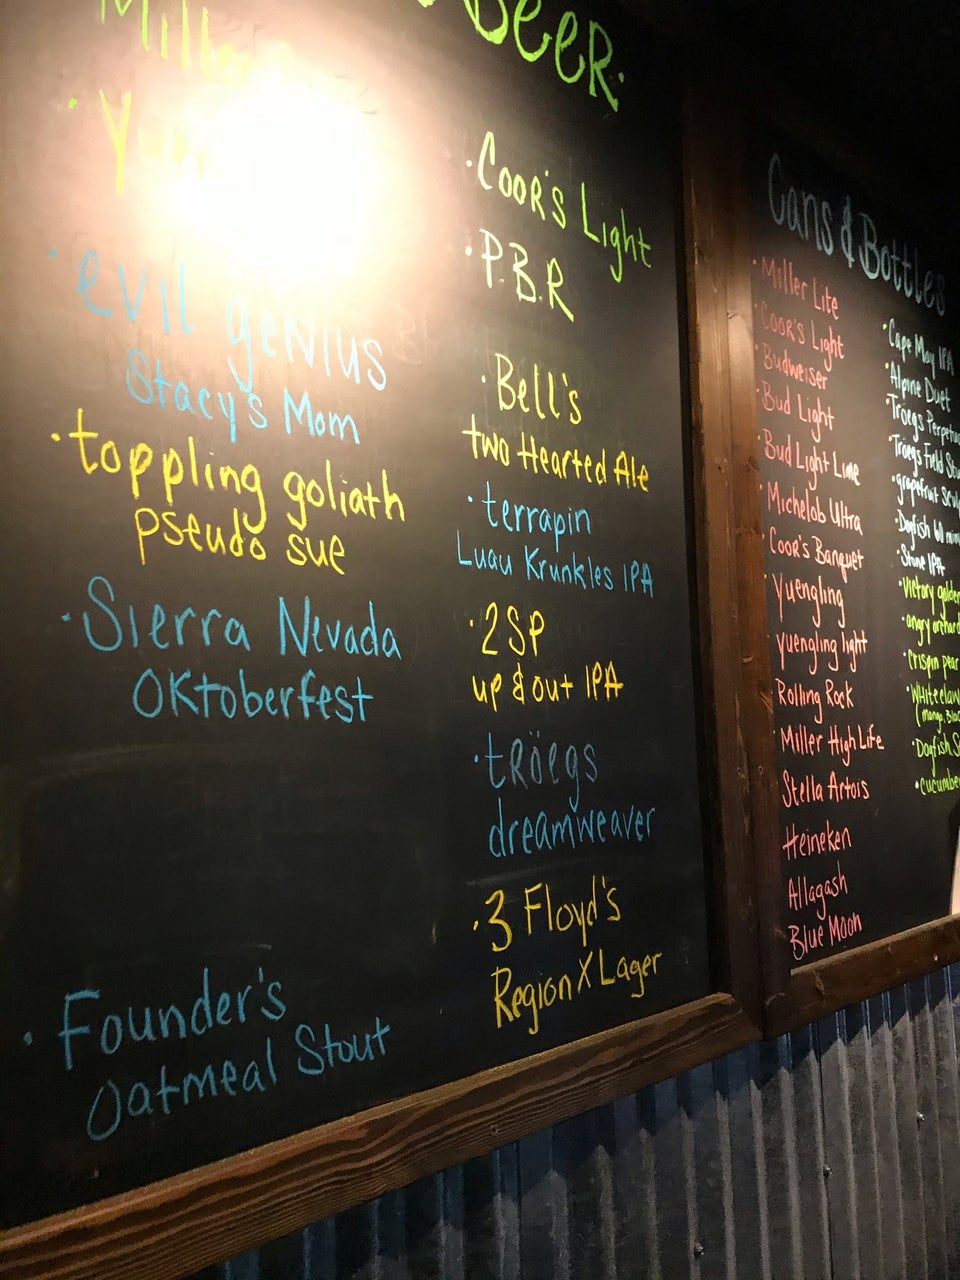 Beer.
Mill
Y
· evil genius
Stacy's Mom
· toppling goliath
pseudo sue
· Sierra Nevada
Oktoberfest
· Founder's
Oatmeal Stout
· Coor's Light
· P.B.R
· Bell's
two Hearted Ale
· terrapin
Luau Krunkles IPA
· 2SP
up & out IPA
· tröegs
dreamweaver
· 3 Floyd's
Region X Lager
Cans & Bottles
· Miller Lite
· Coor's Light
· Budweiser
· Bud Light
· Bud Light Lime
· Michelob Ultra
· Coor's Banquet
· Yuengling
· yuengling light
· Rolling Rock
· Miller High Life
· Stella Artois
Heineken
Allagash
Blue Moon
· Cape May IPA
· Alpine Duet
· Troegs Perpetu
· Troegs Field Stu
· grapefruit Sculp
· Dogfish 60 min
· Stone IPA
· victory golden
· angry orchard
· crispin pear
· White claw
(mango, Blac
· Dogfish S
· cucumber